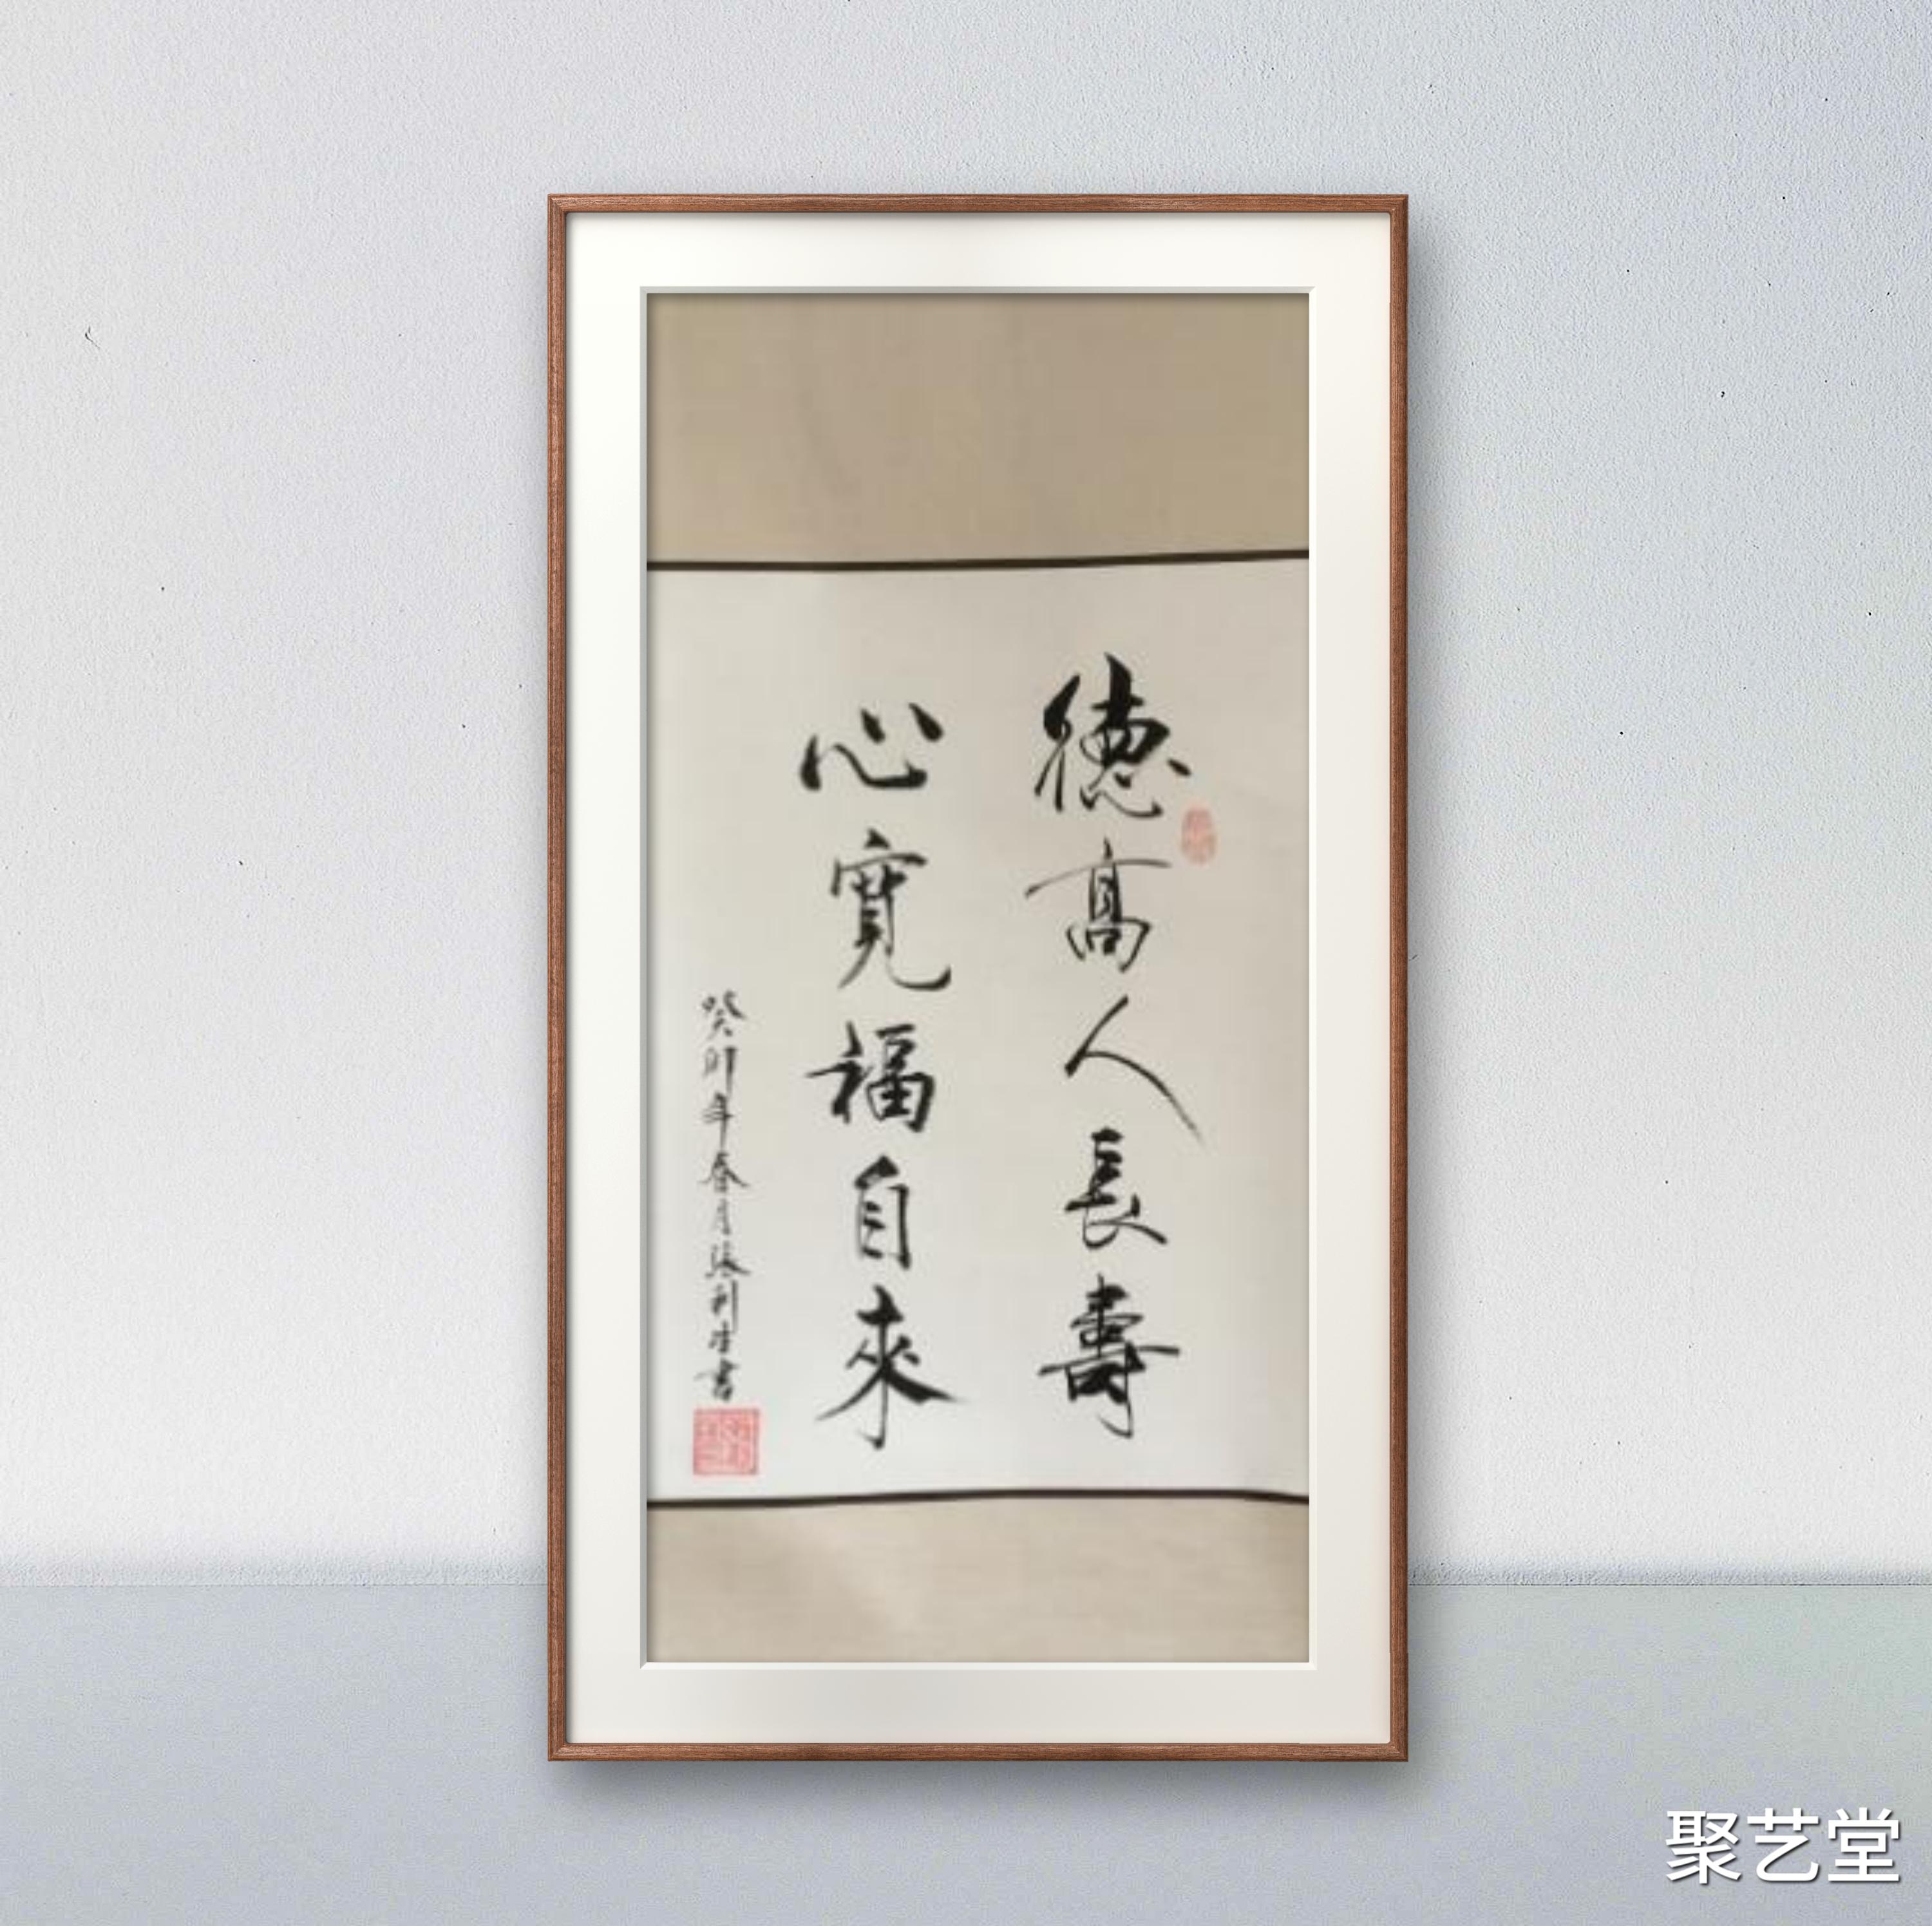 德高人長壽
心寬福自來
癸卯年春月張利生書
聚艺堂